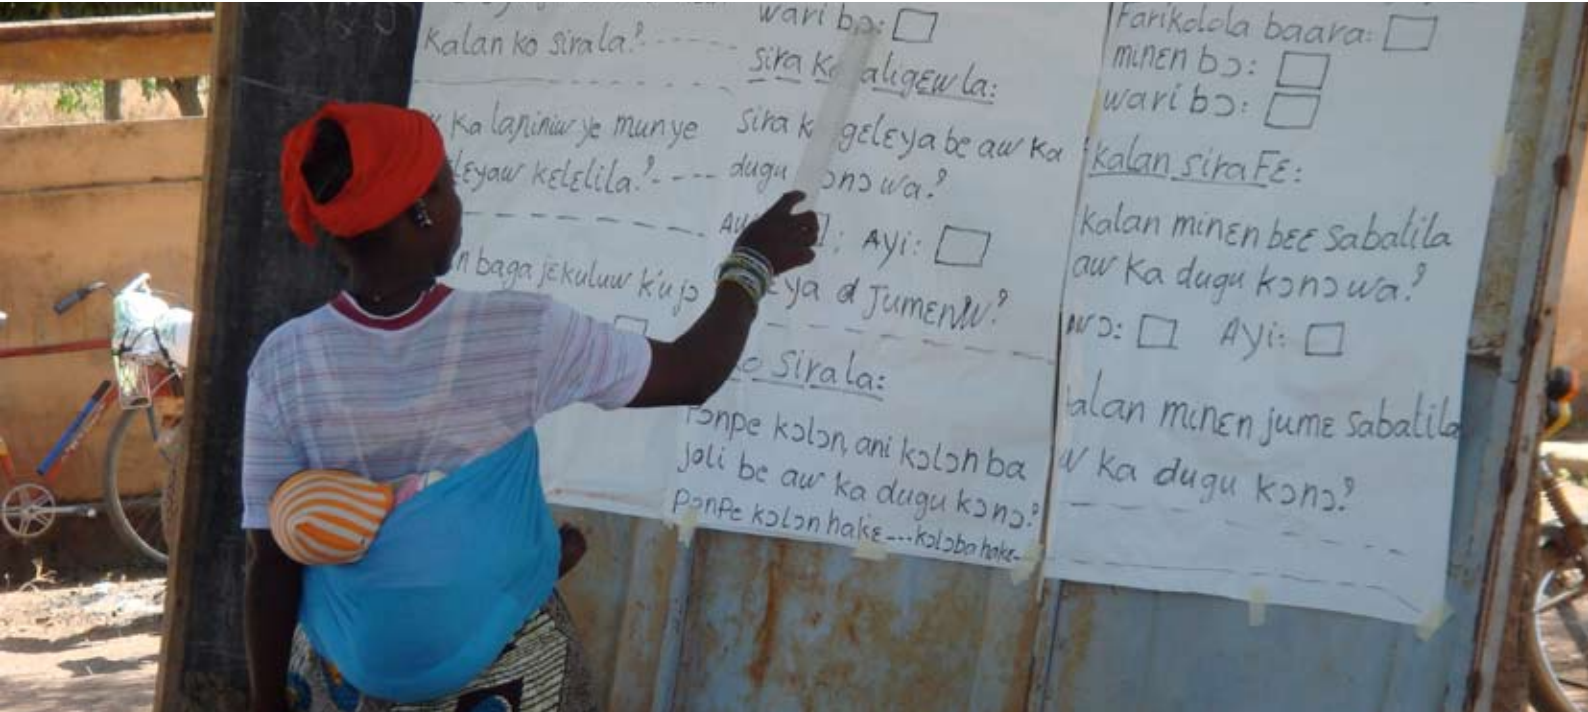 Kalan ko sirala?
Ka laɲiniw ye mun ye
kɛlɛlila?
baga jɛkuluw k'u jɔ
wari bɔ:
sira
la:
sira gɛlɛya be aw ka
dugu kɔnɔ wa?
Ayi:
d Jumɛnw?
Sirala:
Pɔnpe kɔlɔn, ani kɔlɔn ba
joli be aw ka dugu kɔnɔ?
Pɔnpe kɔlɔn hakɛ---kɔlɔba hakɛ-
Farikolola baara:
minɛn bɔ:
wari bɔ:
kalan sira Fɛ:
kalan minɛn bɛɛ sabatila
aw ka dugu kɔnɔ wa?
Ayi:
minɛn jumɛ sabatila
ka dugu kɔnɔ?